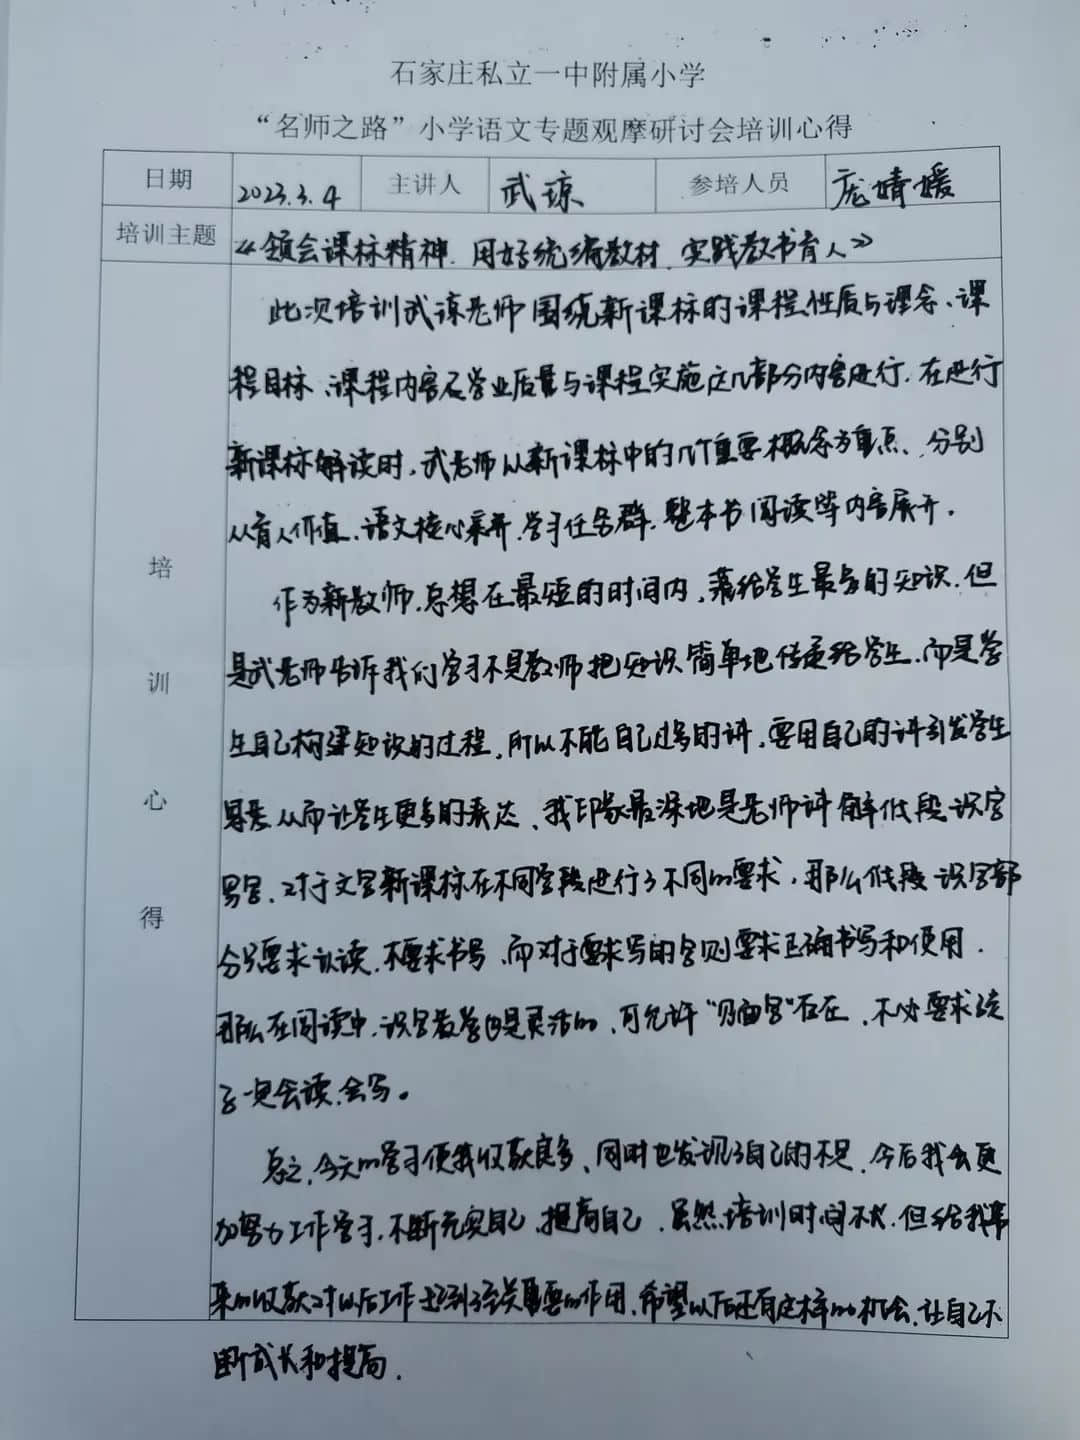 石家庄私立一中附属小学
“名师之路”小学语文专题观摩研讨会培训心得
日期 2023.3.4 主讲人 武琼 参培人员 庞婧媛
培训主题 《领会课标精神.用好统编教材.实践教书育人》
培训心得
此次培训武谅老师围绕新课标的课程性质与理念、课
程目标、课程内容及学业质量与课程实施这几部分内容进行.在进行
新课标解读时,武老师从新课标中的几个重要概念为重点、分别
从育人价值、语文核心素养.学习任务群.整本书阅读等内容展开.
作为新教师.总想在最短的时间内,落给学生最多的知识.但
是武老师告诉我们学习不是教师把知识简单地传递给学生.而是学
生自己构建知识的过程.所以不能自己过多的讲,要用自己的讲引发学生
思考从而让学生更多的表达、我印象最深地是老师讲解低段识字
写字.对于文字新课标在不同学段进行了不同的要求,那么低段识字部
分只要求认读.不要求书写.而对于要求写的字则要求正确书写和使用.
那么在阅读中.识字教学也是灵活的、可允许“陌生字”存在、不必要求孩
子一定会读.会写。
总之,今天的学习使我收获良多、同时也发现了自己的不足.今后我会更
加努力工作学习,不断充实自己.提高自己.虽然培训时间不长.但给我带
来的收获对以后工作起到至关重要的作用.希望以后还有这样的机会.让自己不
断成长和提高.